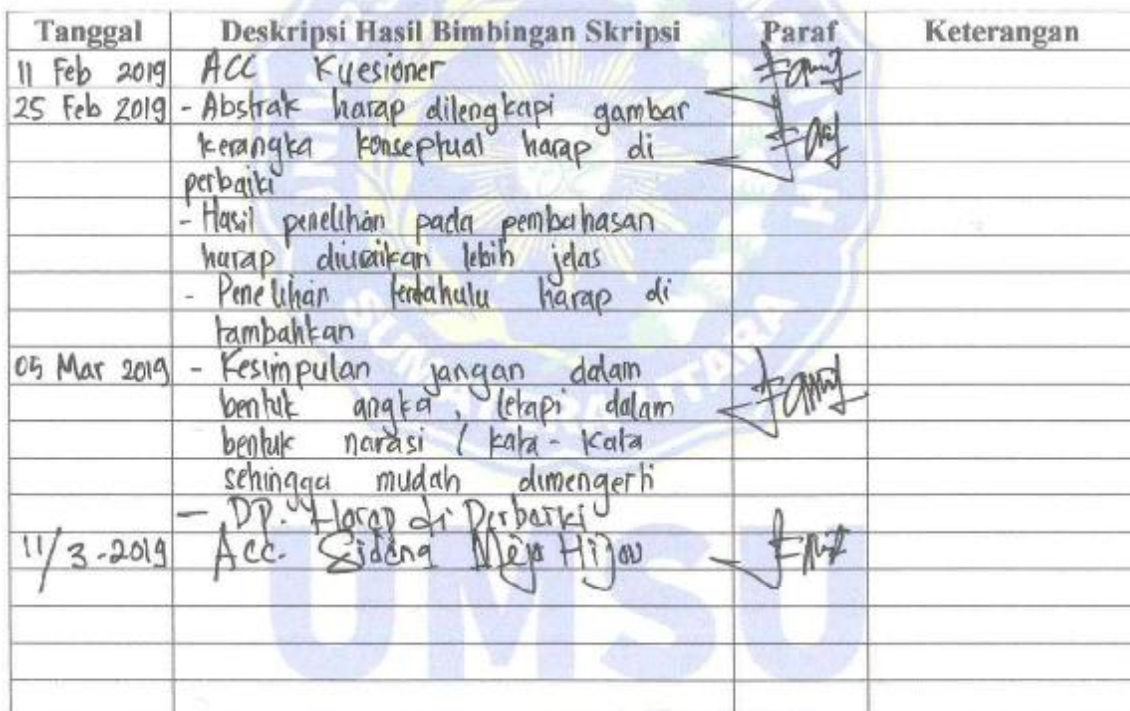 Tanggal Deskripsi Hasil Bimbingan Skripsi Paraf Keterangan
11 Feb 2019 ACC Kuesioner
25 Feb 2019 - Abstrak harap dilengkapi gambar
kerangka konseptual harap di
perbaiki
- Hasil penelitian pada pembahasan
harap diuraikan lebih jelas
- Penelitian terdahulu harap di
tambahkan
05 Mar 2019 - Kesimpulan jangan dalam
bentuk angka, tetapi dalam
bentuk narasi / kata - kata
sehingga mudah dimengerti
- DP. Harap di Perbaiki
11/3-2019 Acc. Sidang Meja Hijau
SUMATERA UTARA
UMSU